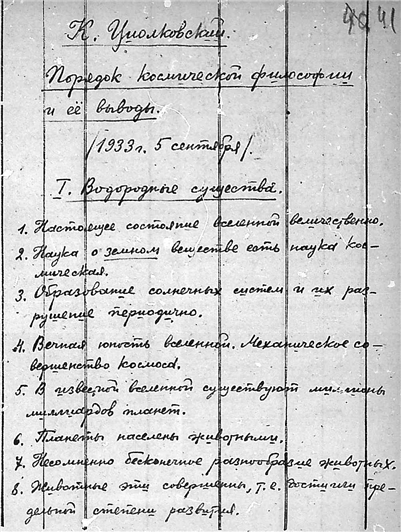 41
К. Циолковский.
Порядок космической философии
и её выводы.
/1933г. 5 сентября/.
I. Водородные существа.
1. Настоящее состояние вселенной величественно.
2. Наука о земном веществе есть наука кос-
мическая.
3. Образование солнечных систем и их раз-
рушение периодично.
4. Вечная юность вселенной. Механическое со-
вершенство космоса.
5. В известной вселенной существуют миллионы
миллиардов планет.
6. Планеты населены животными.
7. Несомненно бесконечное разнообразие животных.
8. Животные эти совершенны, т.е. достигли пре-
дельной степени развития.